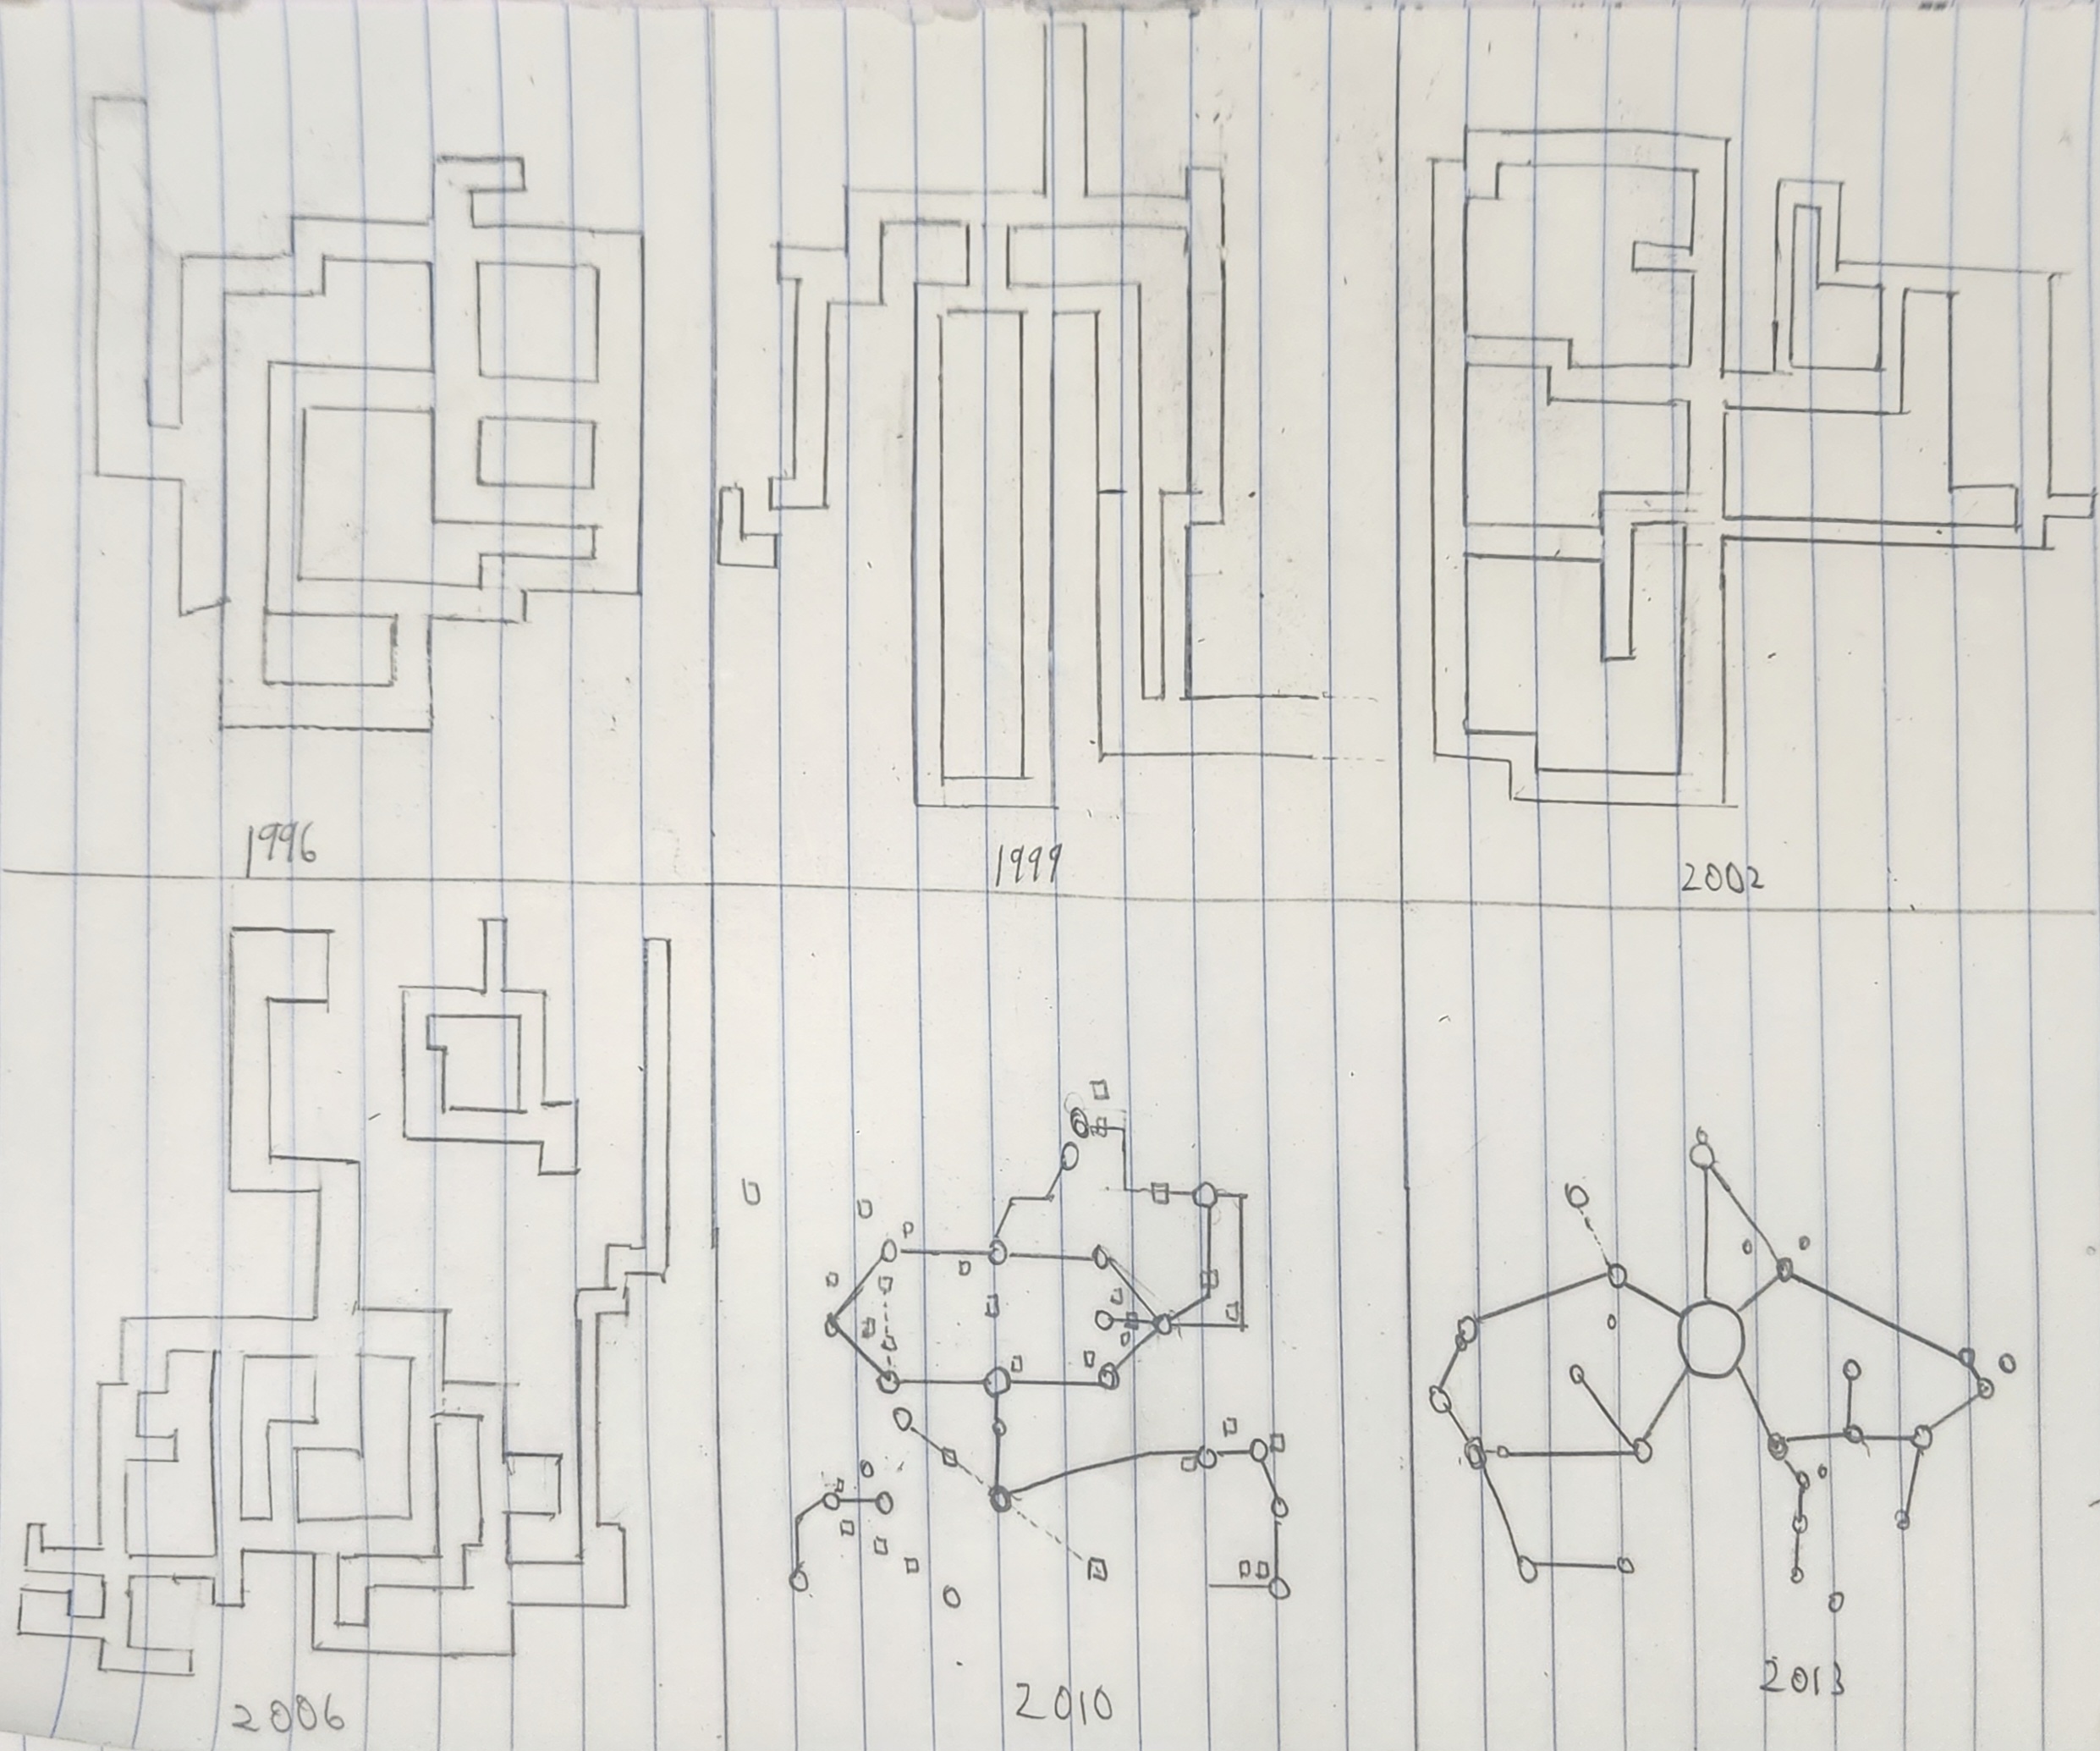 1996
1999
2002
2006
2010
2013